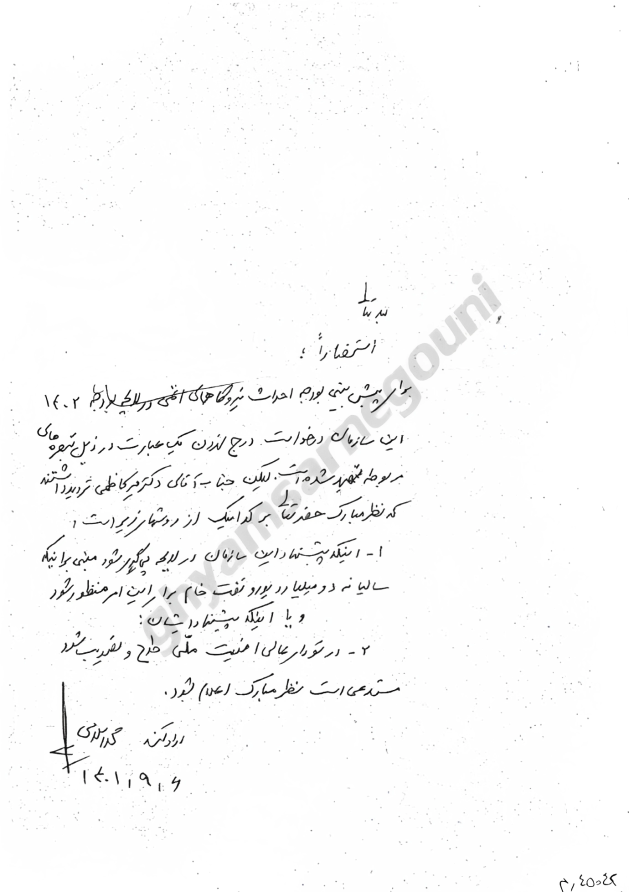 بسمه تعالی
استحضاراً؛
برای پیش بینی بودجه احداث نیروگاههای اتمی در لایحه بودجه ۱۴۰۲
این سازمان درخواست درج نمودن یک عبارت در ذیل تبصره های
مربوطه تمهید شده است. لیکن جناب آقای دکتر میرکاظمی تردید داشتند
که نظر مبارک حضرتعالی بر کدامیک از روشهای زیر است:
۱- اینکه پیشنهاد این سازمان در لایحه پیگیری شود مبنی بر اینکه
سالیانه دو میلیارد یورو نفت خام برای این امر منظور شود
و یا اینکه پیشنهاد ایشان:
۲- در شورای عالی امنیت ملّی طرح و تصویب شود
مستدعی است نظر مبارک اعلام شود.
ارادتمند
۱۴۰۱,۹,۶
ghyamsarnegouni